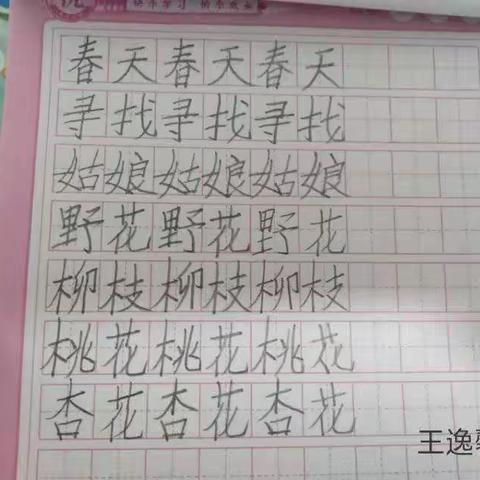 快乐学习
春天春天春天
寻找寻找寻找
姑娘姑娘姑娘
野花野花野花
柳枝柳枝柳枝
桃花桃花桃花
杏花杏花杏花
王逸